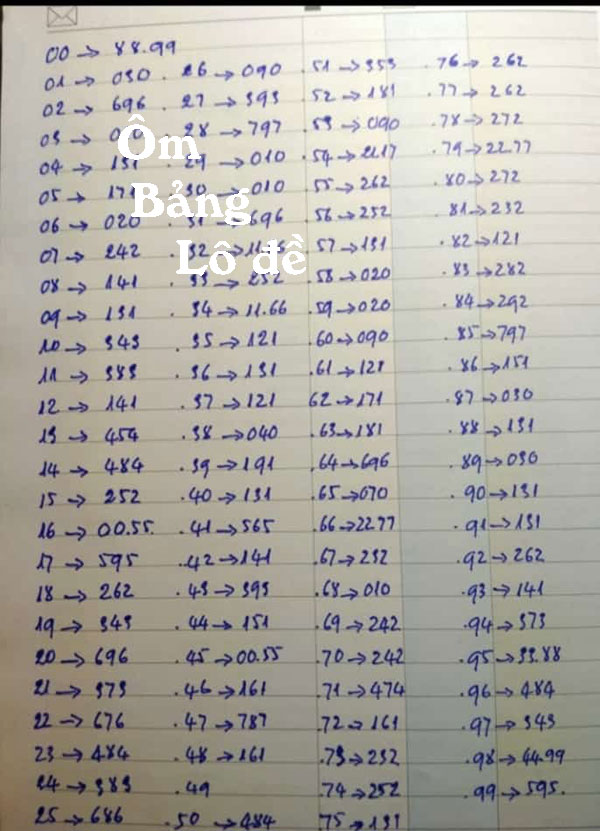 00 → 88.99
01 → 030
02 → 696
03 →
04 → 131
05 → 171
06 → 020
07 → 242
08 → 141
09 → 131
10 → 343
11 → 383
12 → 141
13 → 454
14 → 484
15 → 252
16 → 00.55.
17 → 595
18 → 262
19 → 343
20 → 696
21 → 373
22 → 676
23 → 484
24 → 383
25 → 686
. 26 → 090
. 27 → 393
. 28 → 797
. 29 → 010
. 30 → 010
. 31 → 696
. 32 →
. 33 → 252
. 34 → 11.66
. 35 → 121
. 36 → 131
. 37 → 121
. 38 → 040
. 39 → 191
. 40 → 131
. 41 → 565
. 42 → 141
. 43 → 393
. 44 → 151
. 45 → 00.55
. 46 → 161
. 47 → 787
. 48 → 161
. 49
. 50 → 484
. 51 → 353
. 52 → 181
. 53 → 090
. 54 → 22.17
. 55 → 262
. 56 → 252
. 57 → 131
. 58 → 020
. 59 → 020
. 60 → 090
. 61 → 121
62 → 171
. 63 → 181
. 64 → 696
. 65 → 070
. 66 → 22.77
. 67 → 232
. 68 → 010
. 69 → 242
. 70 → 242
. 71 → 474
. 72 → 161
. 73 → 232
. 74 → 252
75 → 131
. 76 → 262
. 77 → 262
. 78 → 272
. 79 → 22.77
. 80 → 272
. 81 → 232
. 82 → 121
. 83 → 282
. 84 → 292
. 85 → 797
. 86 → 151
. 87 → 030
. 88 → 131
. 89 → 030
. 90 → 131
. 91 → 131
. 92 → 262
. 93 → 141
. 94 → 373
. 95 → 33.88
. 96 → 484
. 97 → 343
. 98 → 44.99
. 99 → 595.
Ôm
Bảng
Lô đề